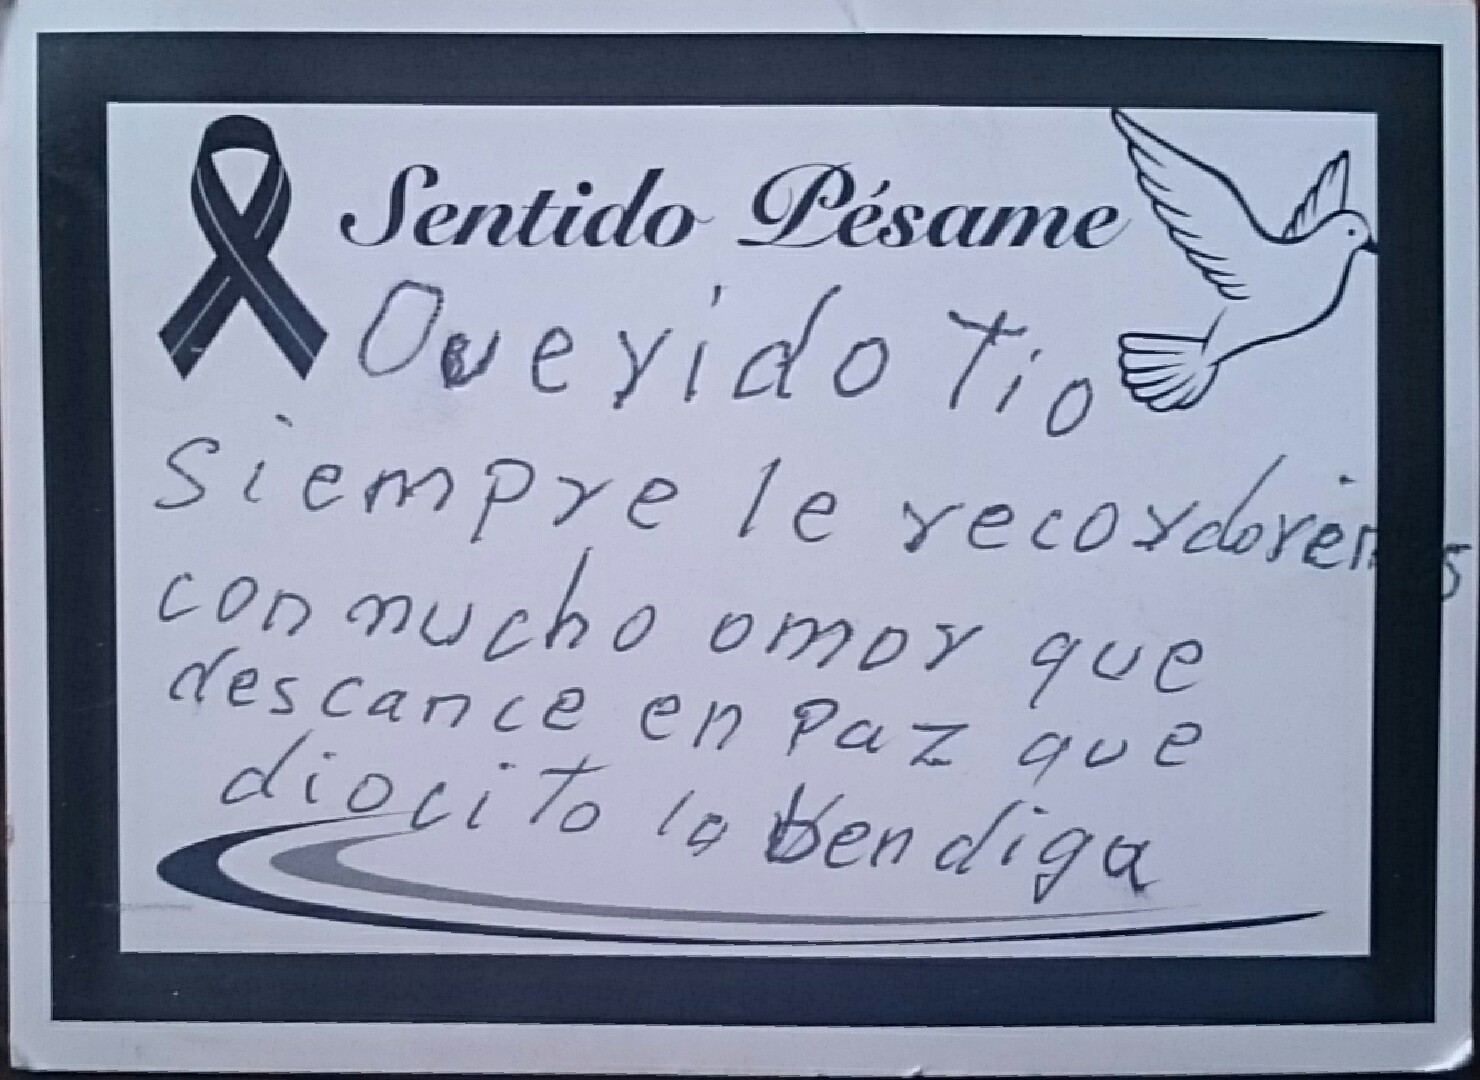 Sentido Pésame
Querido Tio
siempre le recordaremos
con mucho amor que
descance en Paz que
diocito lo bendiga